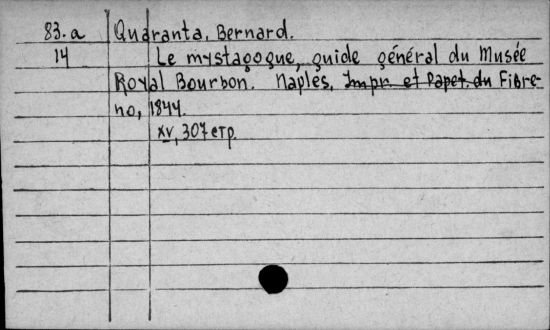 83.a Quaranta, Bernard.
14 Le mystagogue, guide général du Musée
Royal Bourbon. Naples, Impr. et Papet. du Fibre-
no, 1844.
xv, 307 стр.